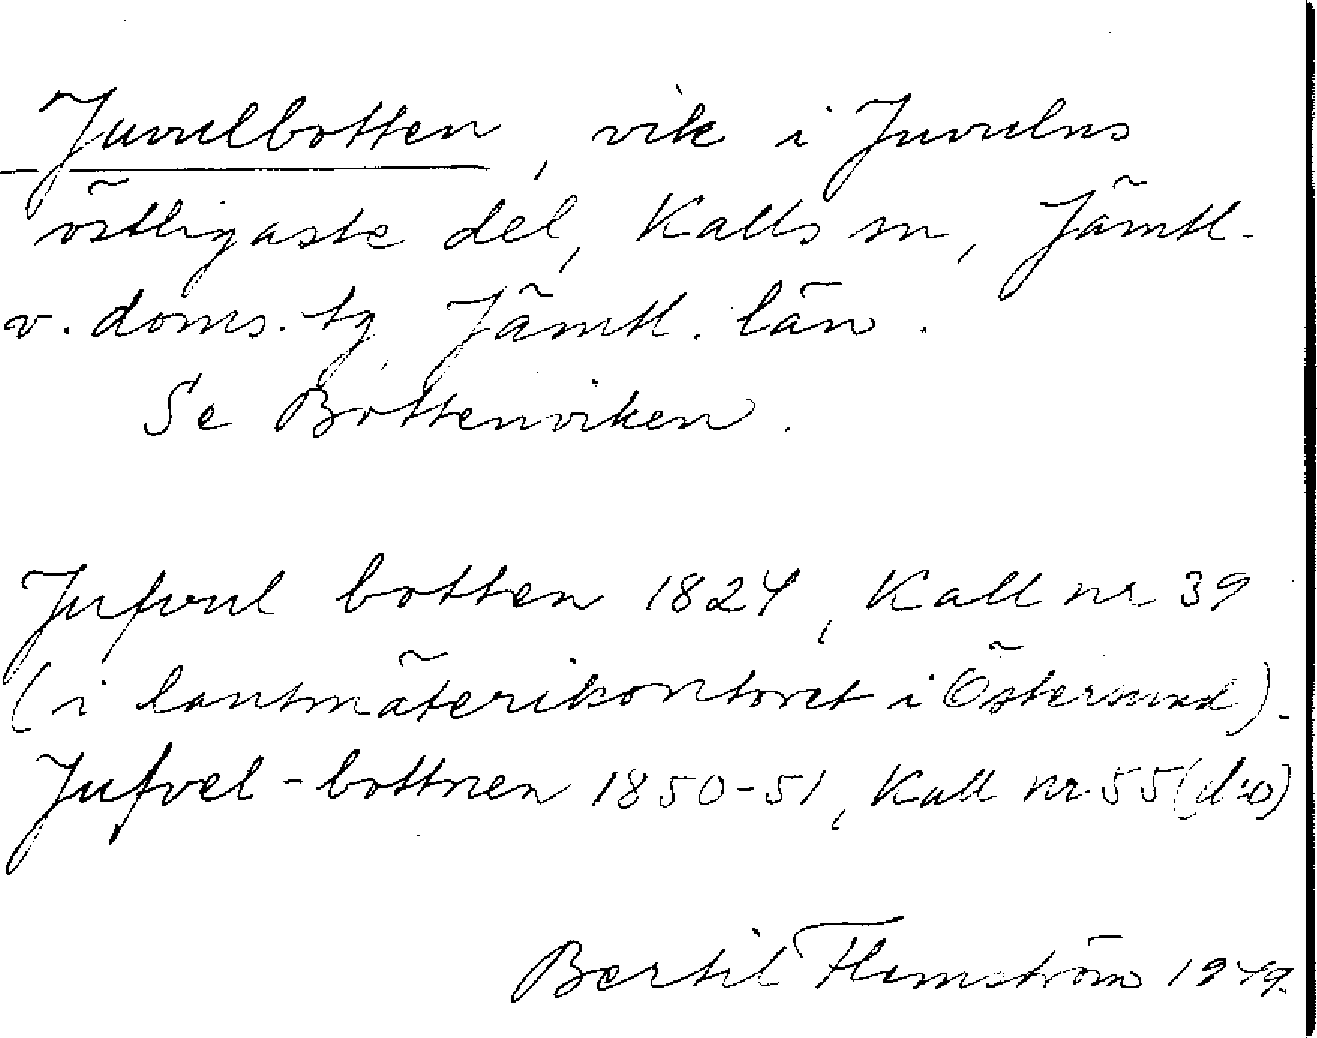 Juvulbotten, vik i Juvulns
östligaste del, Kalls sn, Jämtl.
v. doms. tg Jämtl. län.
Se Bottenviken.
Jufvul botten 1824, Kall nr 39
(i lantmäterikontoret i Östersund).
Jufvel-bottnen 1850-51, Kall nr 55 (d:o)
Bertil Flemström 1979.